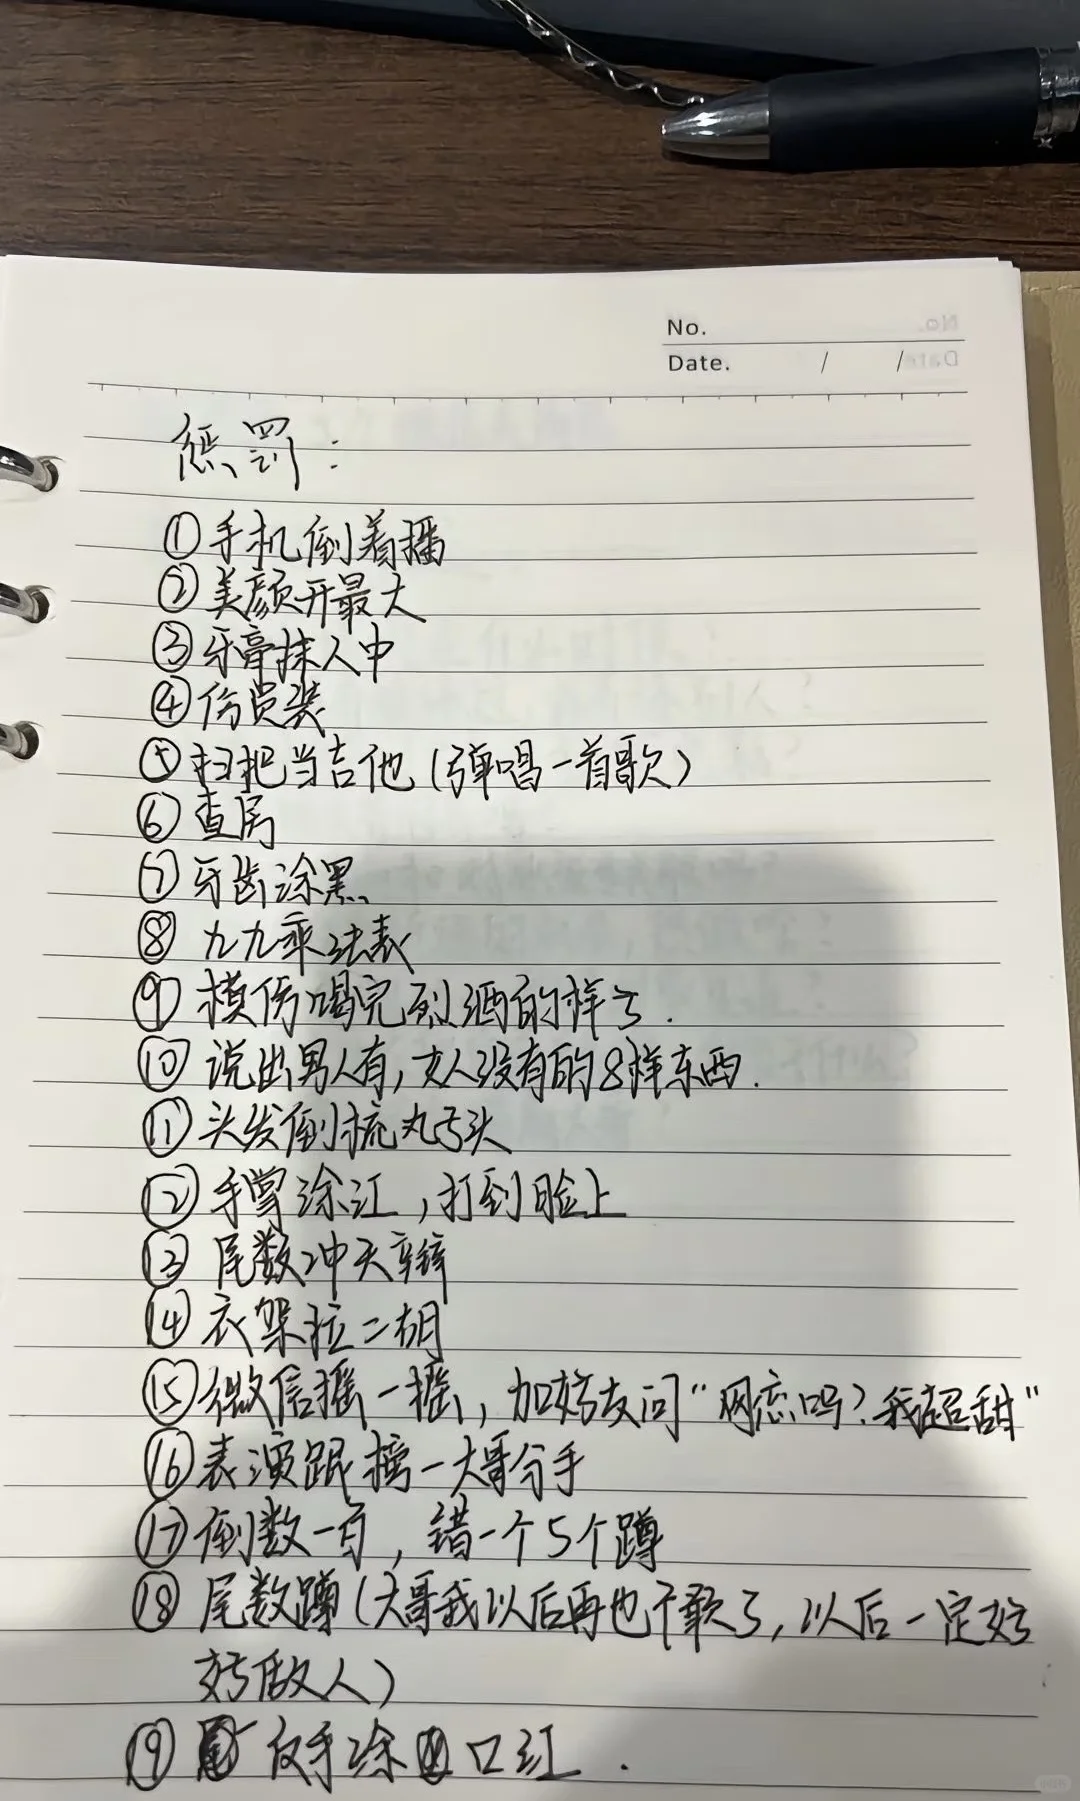 No.
Date. / /
惩罚:
①手机倒着播
②美颜开最大
③牙膏抹人中
④伤员装
⑤扫把当吉他(弹唱一首歌)
⑥查房
⑦牙齿涂黑
⑧九九乘法表
⑨模仿喝完烈酒的样子.
⑩说出男人有,女人没有的8样东西.
⑪头发倒梳丸子头
⑫手掌涂江,打到脸上
⑬尾数冲天辫
⑭衣架拉二胡
⑮微信摇一摇,加好友问"网恋吗?我超甜"
⑯表演跟榜一大哥分手
⑰倒数一百,错一个5个蹲
⑱尾数蹲(大哥我以后再也不敢了,以后一定好
好做人)
⑲反手涂口红.